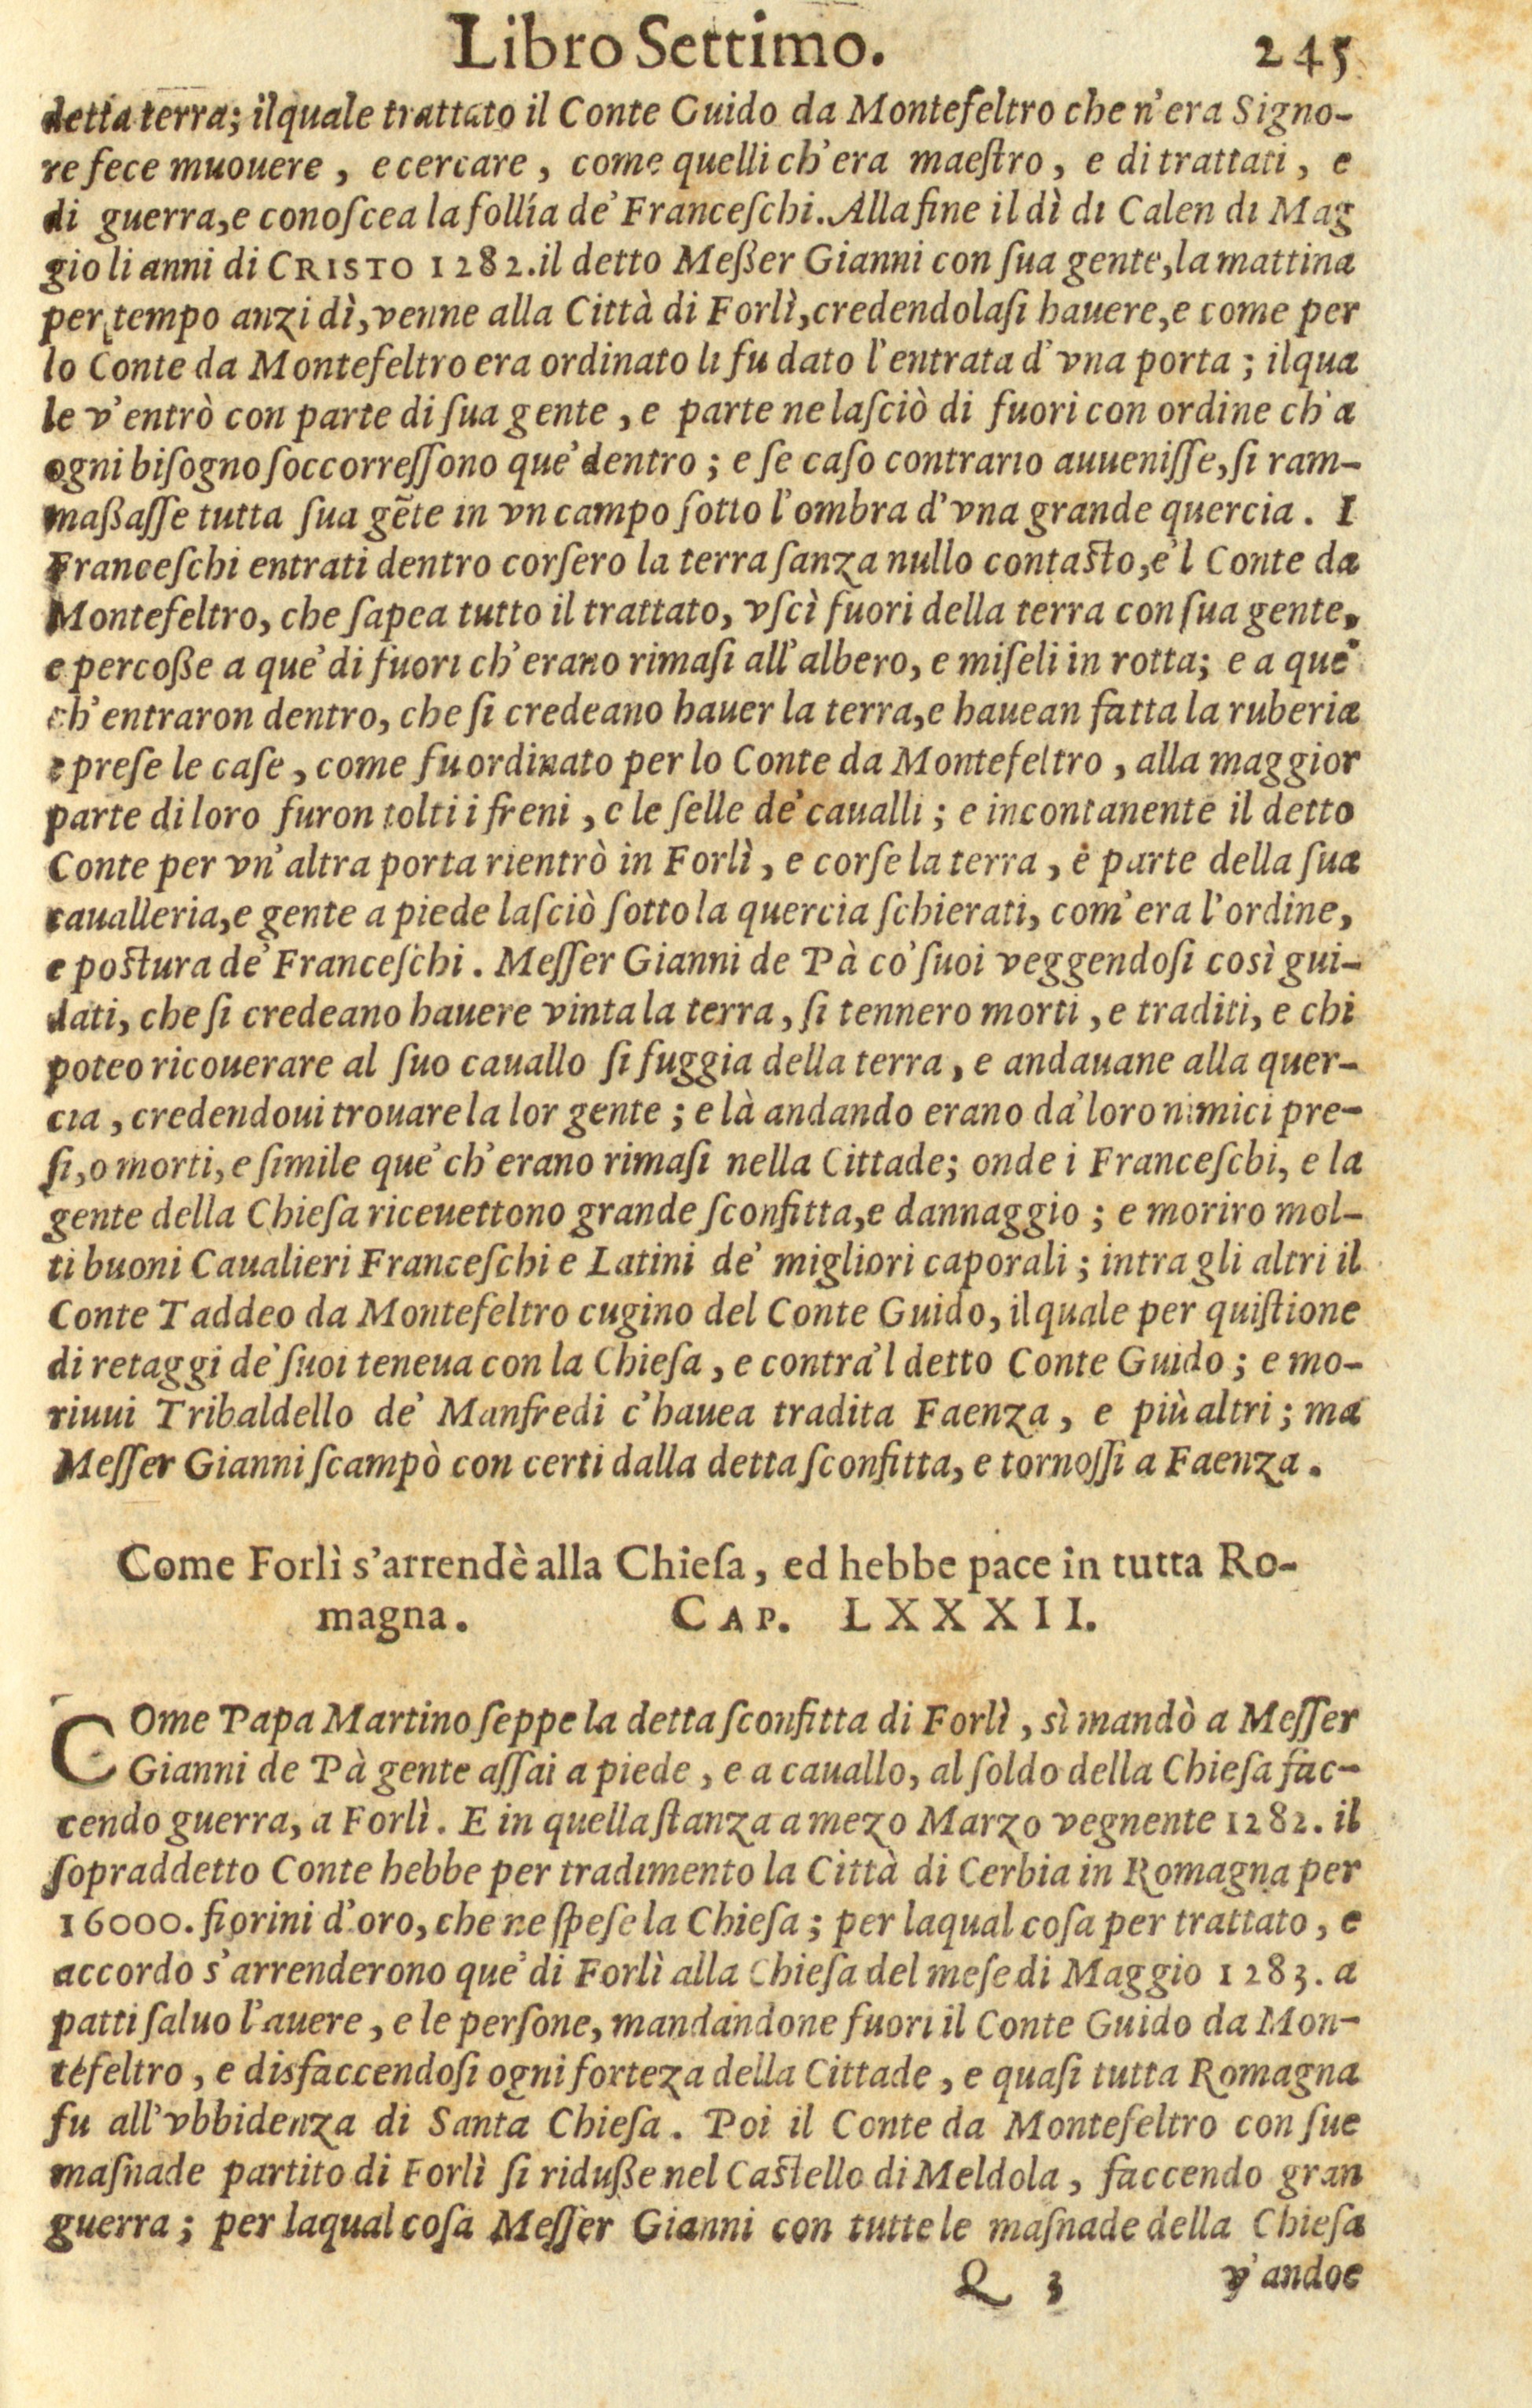 Libro Settimo. 245
detta terra; ilquale trattato il Conte Guido da Montefeltro che n'era Signo-
re fece muouere, e cercare, come quelli ch'era maeſtro, e di trattati, e
di guerra, e conoſcea la follia de' Franceſchi. Alla fine il dì di Calen di Mag
gio li anni di CRISTO 1282. il detto Meßer Gianni con ſua gente, la mattina
per tempo anzi dì, venne alla Città di Forlì, credendolaſi hauere, e come per
lo Conte da Montefeltro era ordinato li fu dato l'entrata d'vna porta; ilqua
le v'entrò con parte di ſua gente, e parte ne laſciò di fuori con ordine ch'a
ogni biſogno ſoccorreſſono que' dentro; e ſe caſo contrario auueniſſe, ſi ram-
maßaſſe tutta ſua gẽte in vn campo ſotto l'ombra d'vna grande quercia. I
Franceſchi entrati dentro corſero la terra ſanza nullo contaſto, e'l Conte da
Montefeltro, che ſapea tutto il trattato, vſcì fuori della terra con ſua gente,
e percoße a que' di fuori ch'erano rimaſi all'albero, e miſeli in rotta; e a que'
ch'entraron dentro, che ſi credeano hauer la terra, e hauean fatta la ruberia
e preſe le caſe, come fu ordinato per lo Conte da Montefeltro, alla maggior
parte di loro furon tolti i freni, e le ſelle de' caualli; e incontanente il detto
Conte per vn'altra porta rientrò in Forlì, e corſe la terra, e parte della ſua
caualleria, e gente a piede laſciò ſotto la quercia ſchierati, com'era l'ordine,
e poſtura de' Franceſchi. Meſſer Gianni de Pà co' ſuoi veggendoſi così gui-
dati, che ſi credeano hauere vinta la terra, ſi tennero morti, e traditi, e chi
poteo ricouerare al ſuo cauallo ſi fuggia della terra, e andauane alla quer-
cia, credendoui trouare la lor gente; e là andando erano da' loro nimici pre-
ſi, o morti, e ſimile que' ch'erano rimaſi nella Cittade; onde i Franceſchi, e la
gente della Chieſa riceuettono grande ſconfitta, e dannaggio; e moriro mol-
ti buoni Caualieri Franceſchi e Latini de' migliori caporali; intra gli altri il
Conte Taddeo da Montefeltro cugino del Conte Guido, ilquale per quiſtione
di retaggi de' ſuoi teneua con la Chieſa, e contra'l detto Conte Guido; e mo-
riuui Tribaldello de' Manfredi c'hauea tradita Faenza, e più altri; ma
Meſſer Gianni ſcampò con certi dalla detta ſconfitta, e tornoſſi a Faenza.
Come Forlì s'arrendè alla Chieſa, ed hebbe pace in tutta Ro-
magna. CAP. LXXXII.
COme Papa Martino ſeppe la detta ſconfitta di Forlì, sì mandò a Meſſer
Gianni de Pà gente aſſai a piede, e a cauallo, al ſoldo della Chieſa fac-
cendo guerra, a Forlì. E in quella ſtanza a mezo Marzo vegnente 1282. il
ſopraddetto Conte hebbe per tradimento la Città di Cerbia in Romagna per
16000. fiorini d'oro, che ne ſpeſe la Chieſa; per laqual coſa per trattato, e
accordo s'arrenderono que' di Forlì alla Chieſa del meſe di Maggio 1283. a
patti ſaluo l'auere, e le perſone, mandandone fuori il Conte Guido da Mon-
tefeltro, e disfaccendoſi ogni forteza della Cittade, e quaſi tutta Romagna
fu all'vbbidenza di Santa Chieſa. Poi il Conte da Montefeltro con ſue
maſnade partito di Forlì ſi riduße nel Caſtello di Meldola, faccendo gran
guerra; per laqual coſa Meſſer Gianni con tutte le maſnade della Chieſa
Q 3 v'andoe